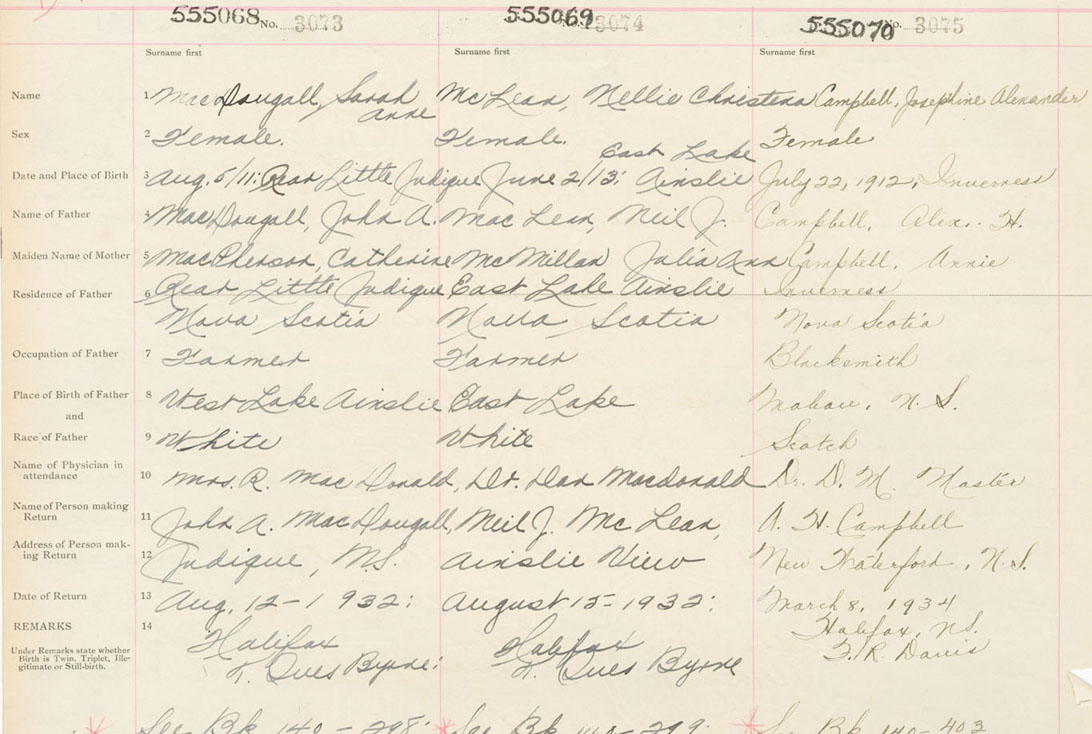 555068 No. 3073 555069 3074 555070 No. 3075
Surname first Surname first Surname first
Name 1 MacDougall, Sarah Anne McLean, Nellie Christena Campbell, Josephine Alexander
Sex 2 Female. Female. Female
Date and Place of Birth 3 Aug. 5/11: Rear Little Judique June 2/13: East Lake Ainslie July 22, 1912, Inverness
Name of Father 4 MacDougall, John A. MacLean, Neil J. Campbell, Alex. H.
Maiden Name of Mother 5 MacPherson, Catherine McMillan Julia Ann Campbell, Annie
Residence of Father 6 Rear Little Judique East Lake Ainslie Inverness
Nova Scotia Nova Scotia Nova Scotia
Occupation of Father 7 Farmer Farmer Blacksmith
Place of Birth of Father 8 West Lake Ainslie East Lake Mabou, N. S.
and
Race of Father 9 White White Scotch
Name of Physician in attendance 10 Mrs. R. MacDonald, Dr. Dan Macdonald Dr. D. M. Master
Name of Person making Return 11 John A. MacDougall, Neil J. McLean, A. H. Campbell
Address of Person making Return 12 Judique, N.S. Ainslie View New Waterford, N.S.
Date of Return 13 Aug. 12-1932: August 15-1932: March 8, 1934
REMARKS 14 Halifax Halifax Halifax, N.S.
Under Remarks state whether Birth is Twin, Triplet, Illegitimate or Still-birth. Byrne: Byrne F. R. Davis
See Bk 140-298: See Bk 140-299: See Bk 140-403